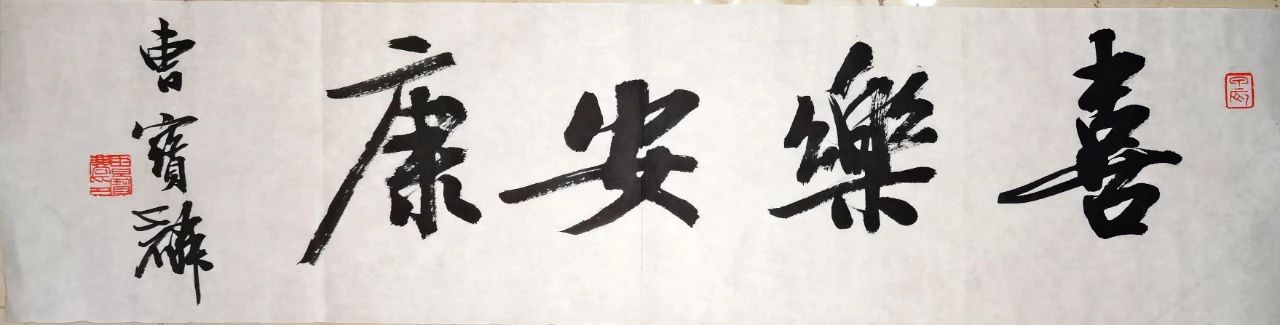 喜樂安康
曹寶麟